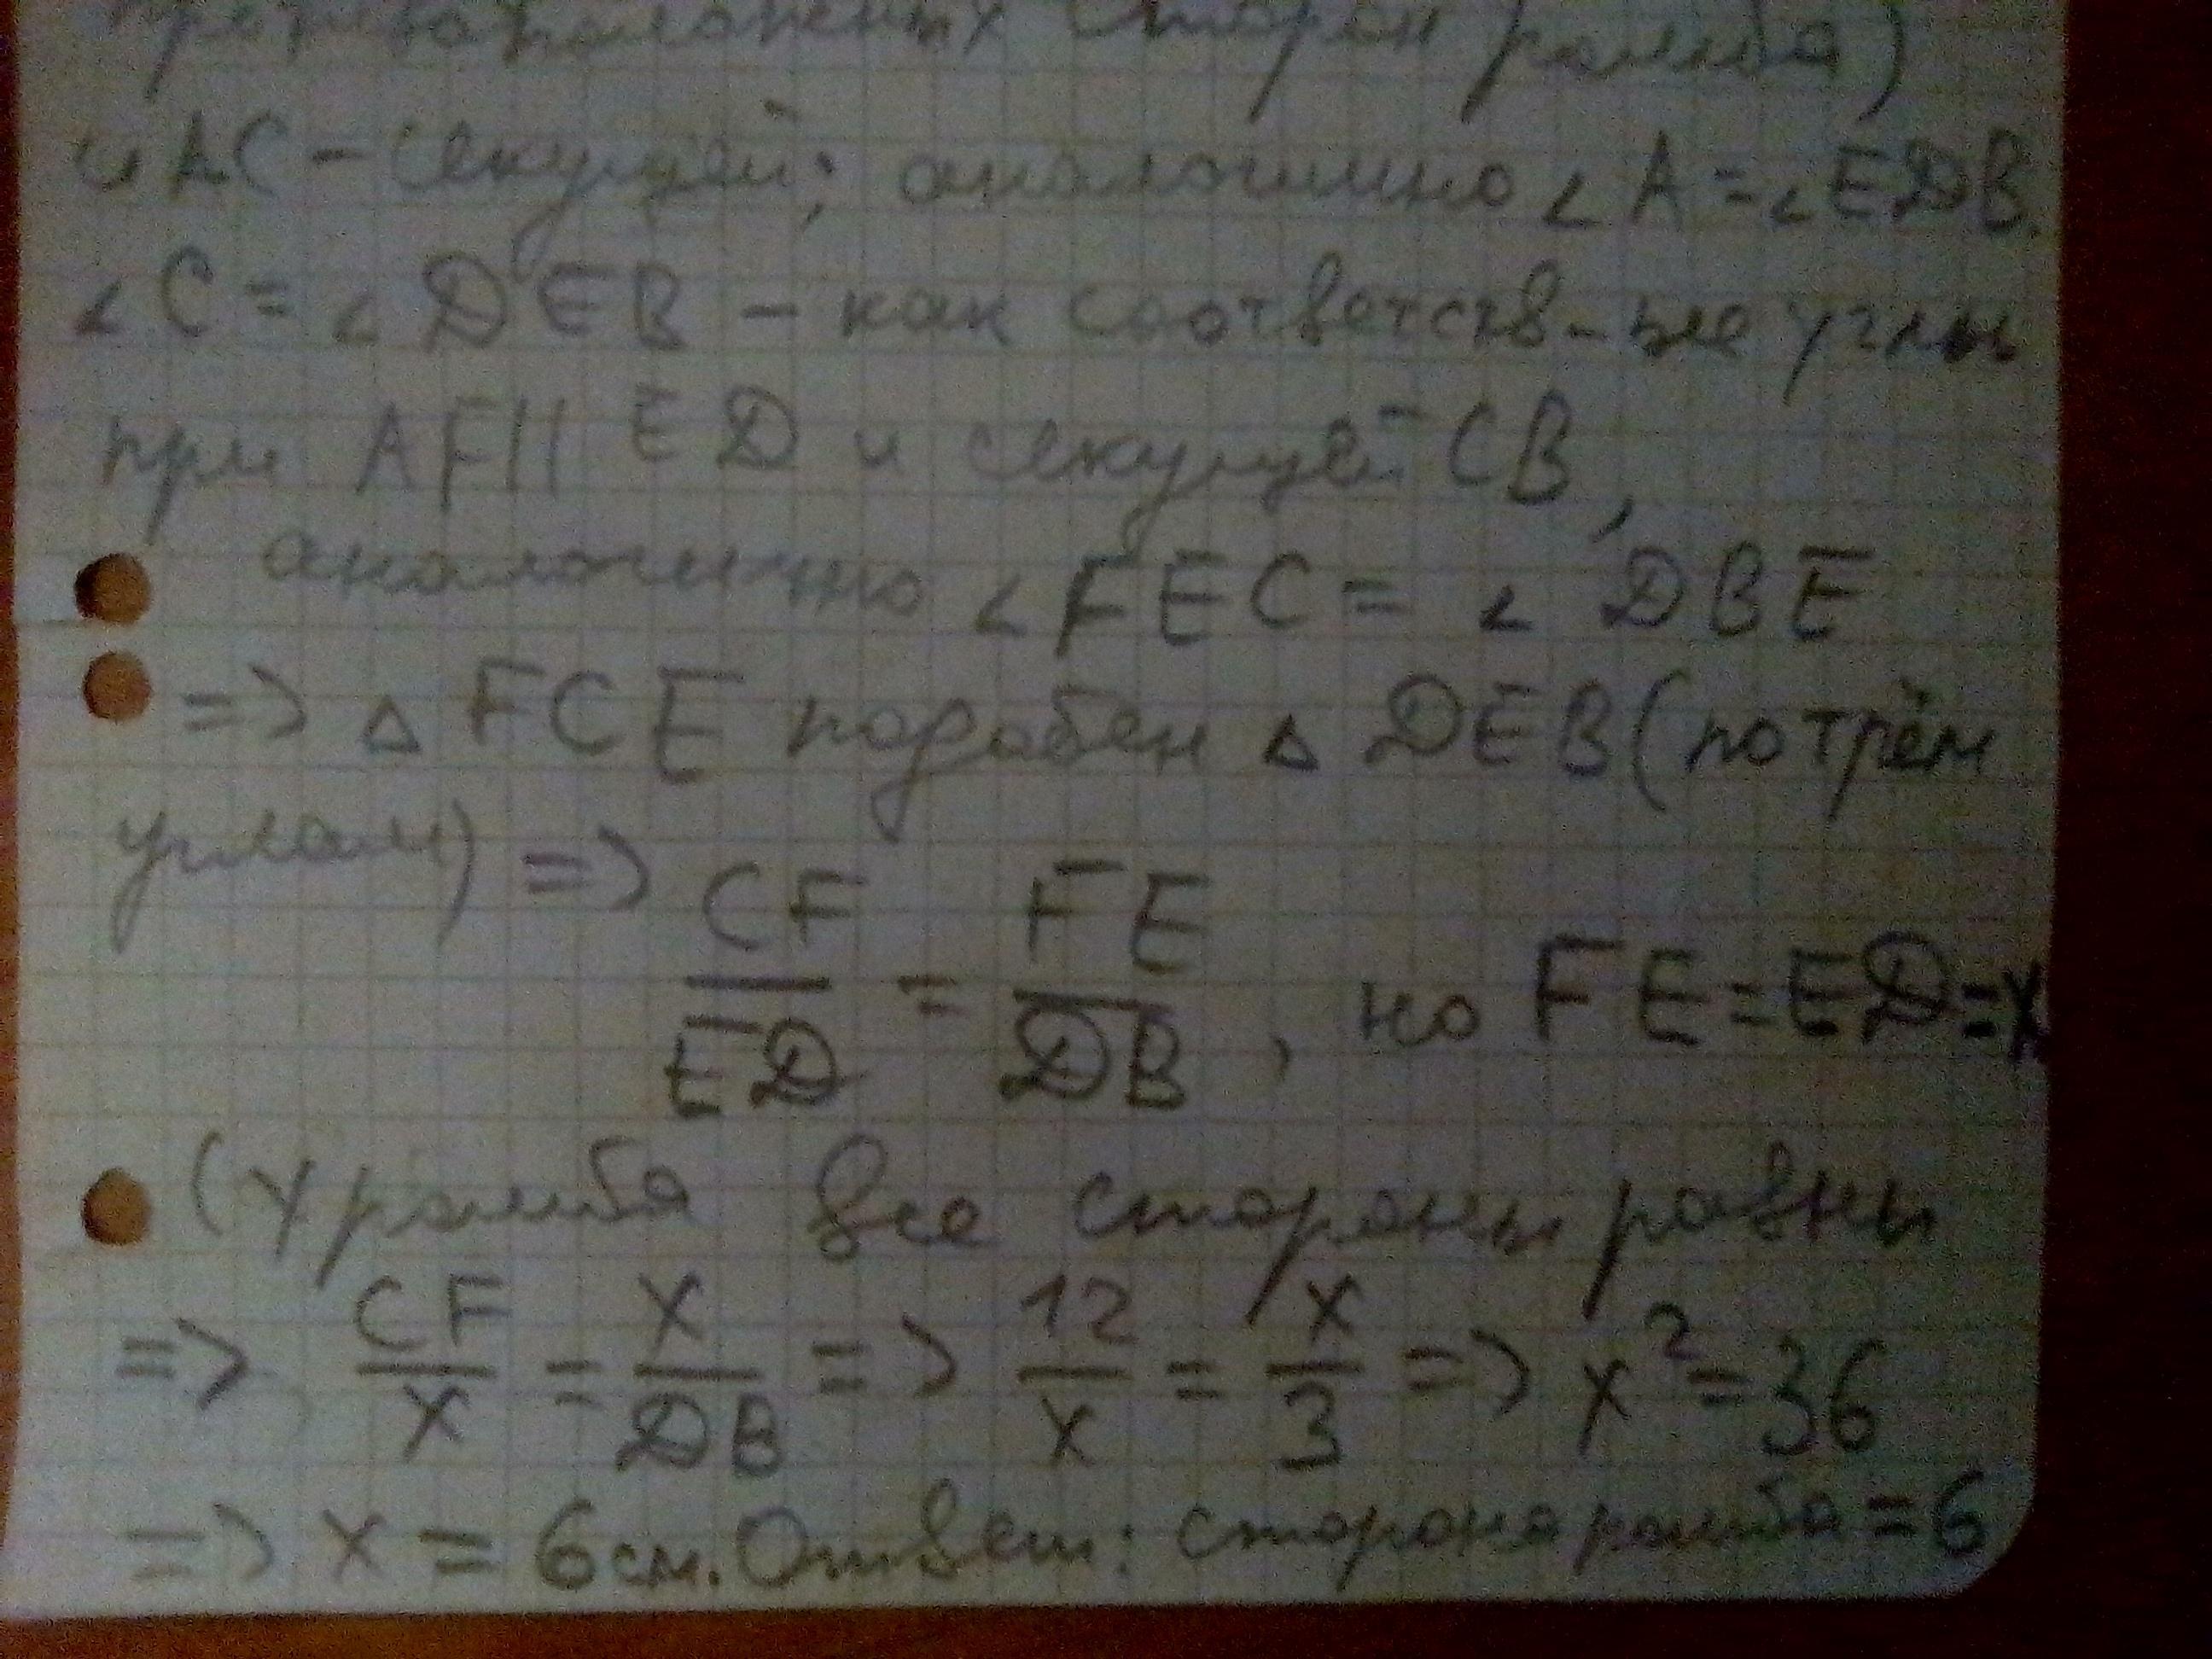 противоположных сторон ромба)
и AC – секущей; аналогично ∠A = ∠EDB.
∠C = ∠DEB – как соответств-ые углы
при AF || ED и секущей CB,
аналогично ∠FEC = ∠DBE
=> △FCE подобен △DEB (по трём
углам) => CF/ED = FE/DB, но FE = ED = x
(у ромба все стороны равны
=> CF/x = x/DB => 12/x = x/3 => x² = 36
=> x = 6 см. Ответ: сторона ромба = 6